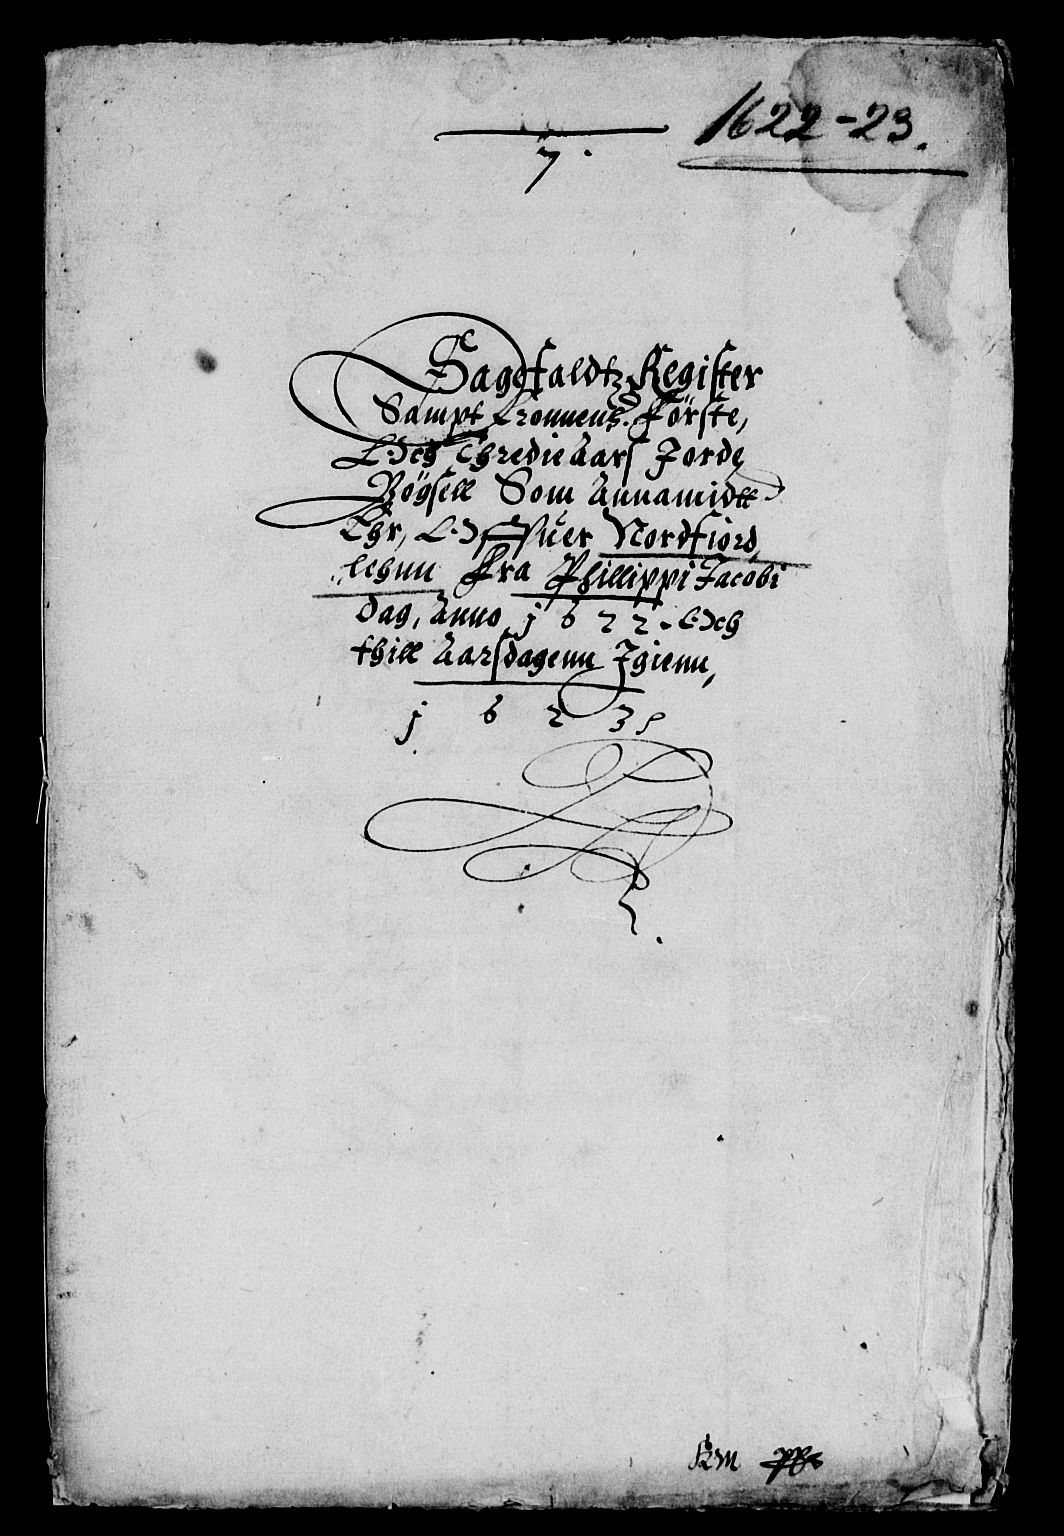 1622-23.
7.
Sagefaldtz Register
Sampt Cronnens. Förste,
Och Thredie Aars Jorde
Bögsell Som Annamidtt
Ehr, Offuer Nordfiord
lehnn Fra Phillippi Jacobi
dag, Anno j622. Och
thill Aarsdagenn Jgienn,
j 6 2 3